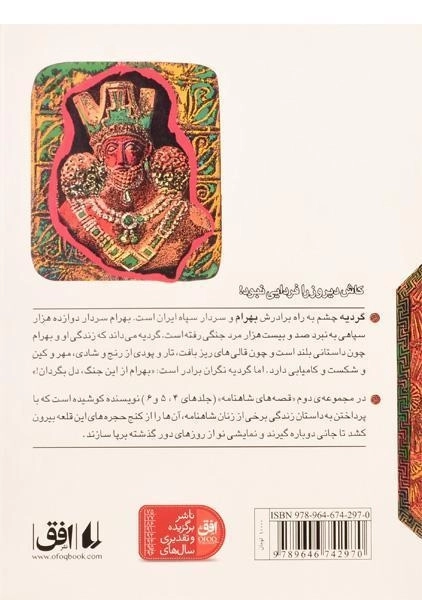 کاش دیروز را فردایی نبود!
گردیه چشم به راه برادرش بهرام و سردار سپاه ایران است. بهرام سردار دوازده هزار
سپاهی به نبرد صد و بیست هزار مرد جنگی رفته است. گردیه می‌داند که زندگی او و بهرام
چون داستانی بلند است و چون قالی‌های ریز بافت، تار و پودی از رنج و شادی، مهر و کین
و شکست و کامیابی دارد. اما گردیه نگران برادر است: «بهرام از این جنگ، دل بگردان!»
در مجموعه‌ی دوم «قصه‌های شاهنامه» (جلدهای ۴، ۵ و ۶) نویسنده کوشیده است که با
پرداختن به داستان زندگی برخی از زنان شاهنامه، آن‌ها را از کنج حجره‌های این قلعه بیرون
کشد تا جانی دوباره گیرند و نمایشی نو از روزهای دور گذشته برپا سازند.
نشر افق
www.ofoqbook.com
ناشر
برگزیده
و تقدیری
سال‌های
افق
OFOQ
۱۰۰۰۰ تومان
ISBN 978-964-674-297-0
9 789646 742970